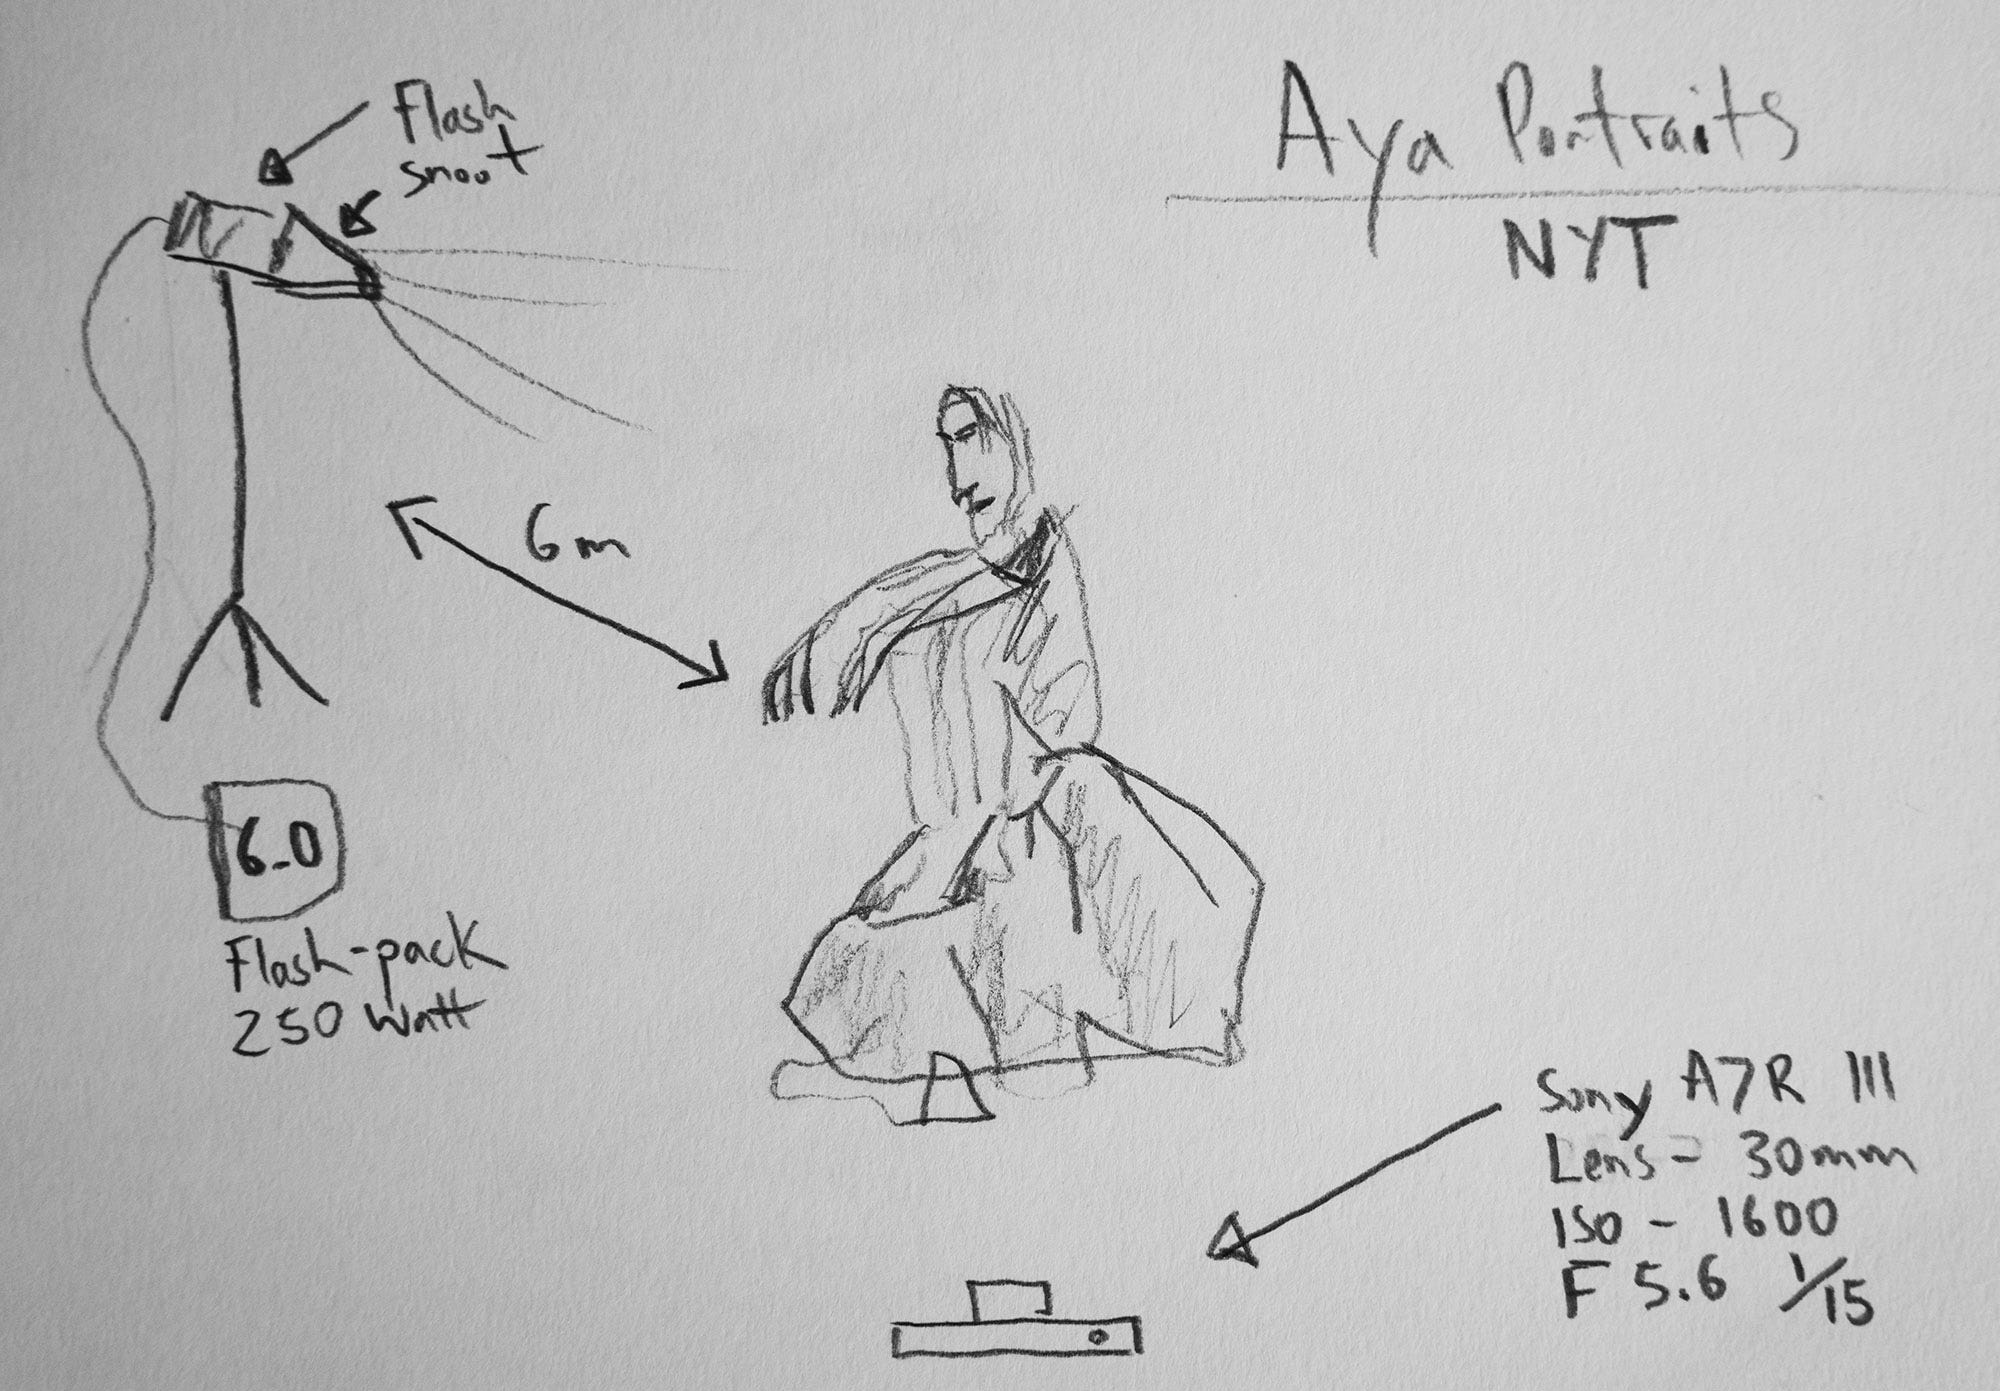 Flash
snoot
Aya Portraits
NYT
6m
6.0
Flash-pack
250 Watt
Sony A7R III
Lens - 30mm
ISO - 1600
F 5.6 1/15